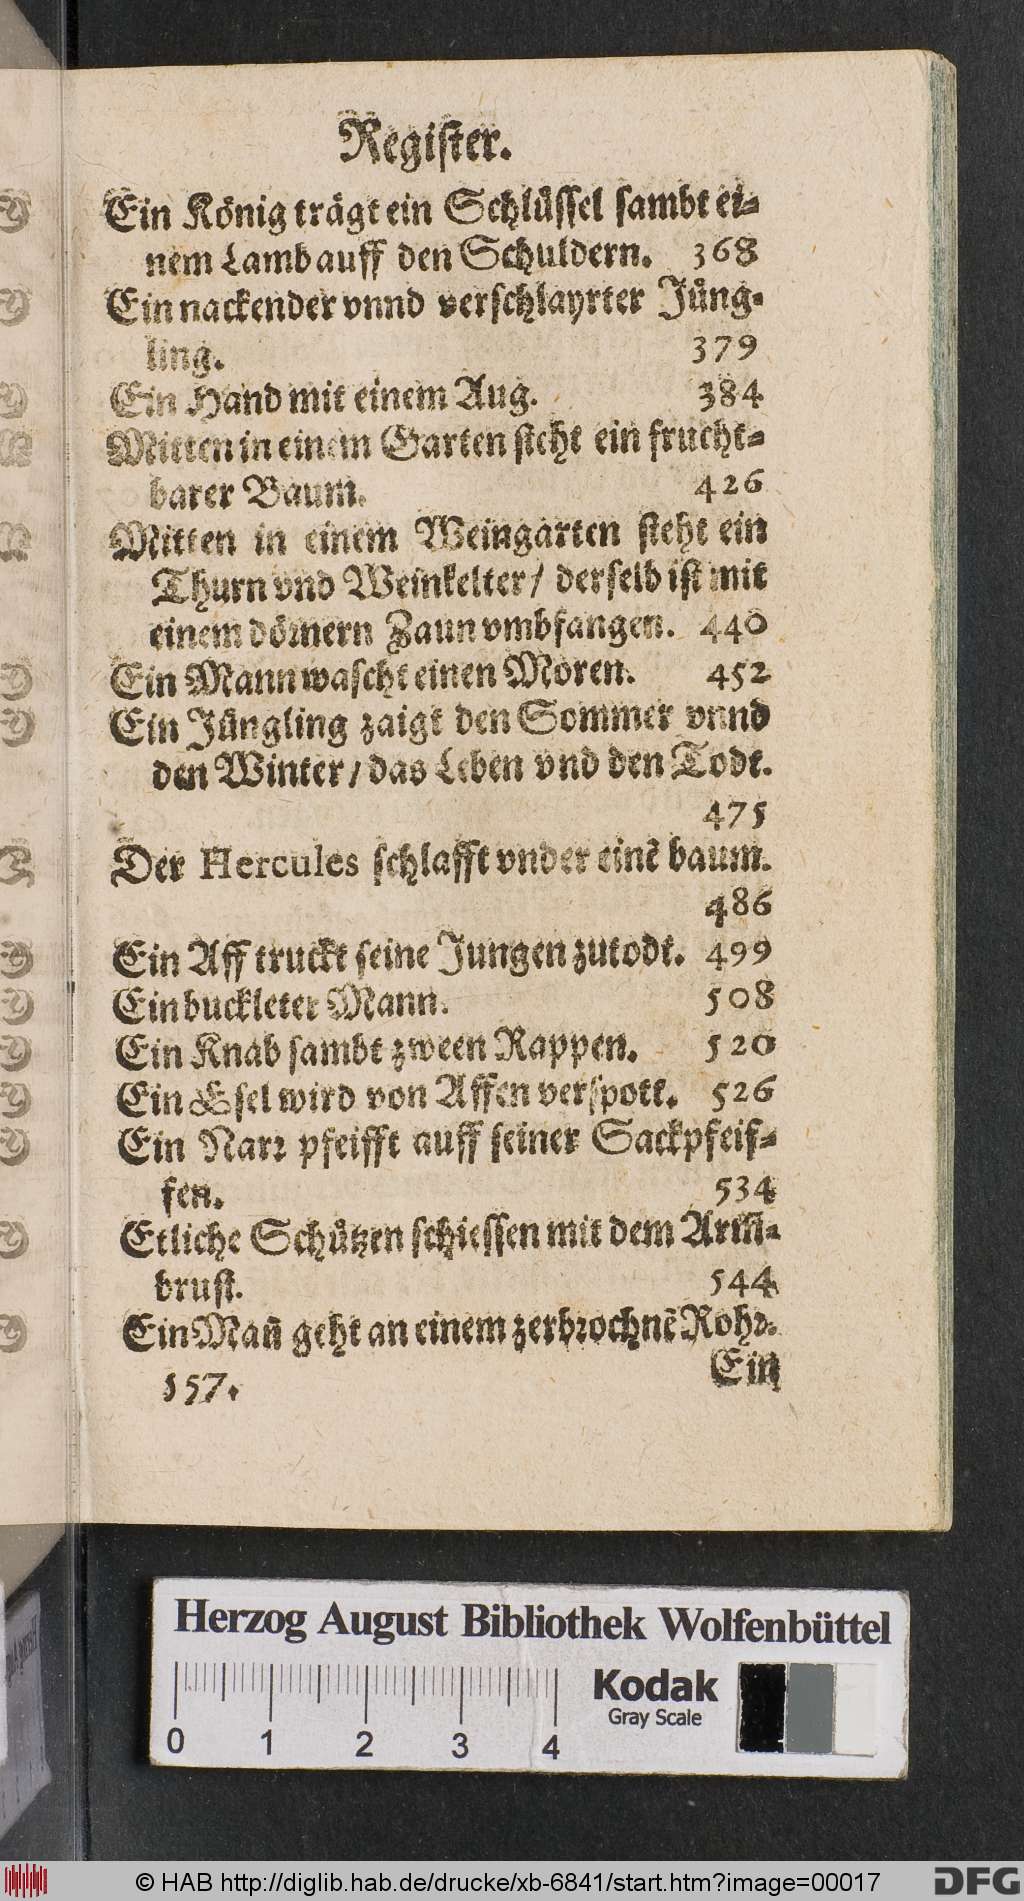 Regiſter.
Ein König trägt ein Schlüſſel ſambt ei⸗
nem Lamb auff den Schuldern. 368
Ein nackender vnnd verſchlayrter Jüng⸗
ling. 379
Ein Hand mit einem Aug. 384
Mitten in einem Garten ſteht ein frucht⸗
barer Baum. 426
Mitten in einem Weingarten ſteht ein
Thurn vnd Weinkelter / derſelb iſt mit
einem dörnern Zaun vmbfangen. 440
Ein Mann waſcht einen Moren. 452
Ein Jüngling zaigt den Sommer vnnd
den Winter / das Leben vnd den Todt.
475
Der Hercules ſchlafft vnder einē baum.
486
Ein Aff truckt ſeine Jungen zutodt. 499
Ein buckleter Mann. 508
Ein Knab ſambt zween Rappen. 520
Ein Eſel wird von Affen verſpott. 526
Ein Narꝛ pfeifft auff ſeiner Sackpfeif⸗
fen. 534
Etliche Schützen ſchieſſen mit dem Arm⸗
bruſt. 544
Ein Mañ geht an einem zerbꝛochnē Rohꝛ.
157. Ein
Herzog August Bibliothek Wolfenbüttel
Kodak
Gray Scale
0 1 2 3 4
© HAB http://diglib.hab.de/drucke/xb-6841/start.htm?image=00017
DFG